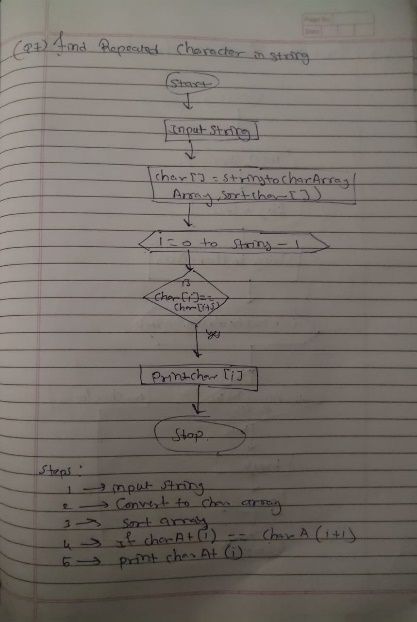 (Q7) find Repeated character in string
Start
Input String
char[] = stringtocharArray
Array.sort char[])
i = 0 to string - 1
is
char[i]==
char[i+1]
Yes
Print char [i]
Stop.
Steps:
1 → input string
2 → Convert to char array
3 → sort array
4 → if charAt(i) == charA(i+1)
5 → print charAt(i)